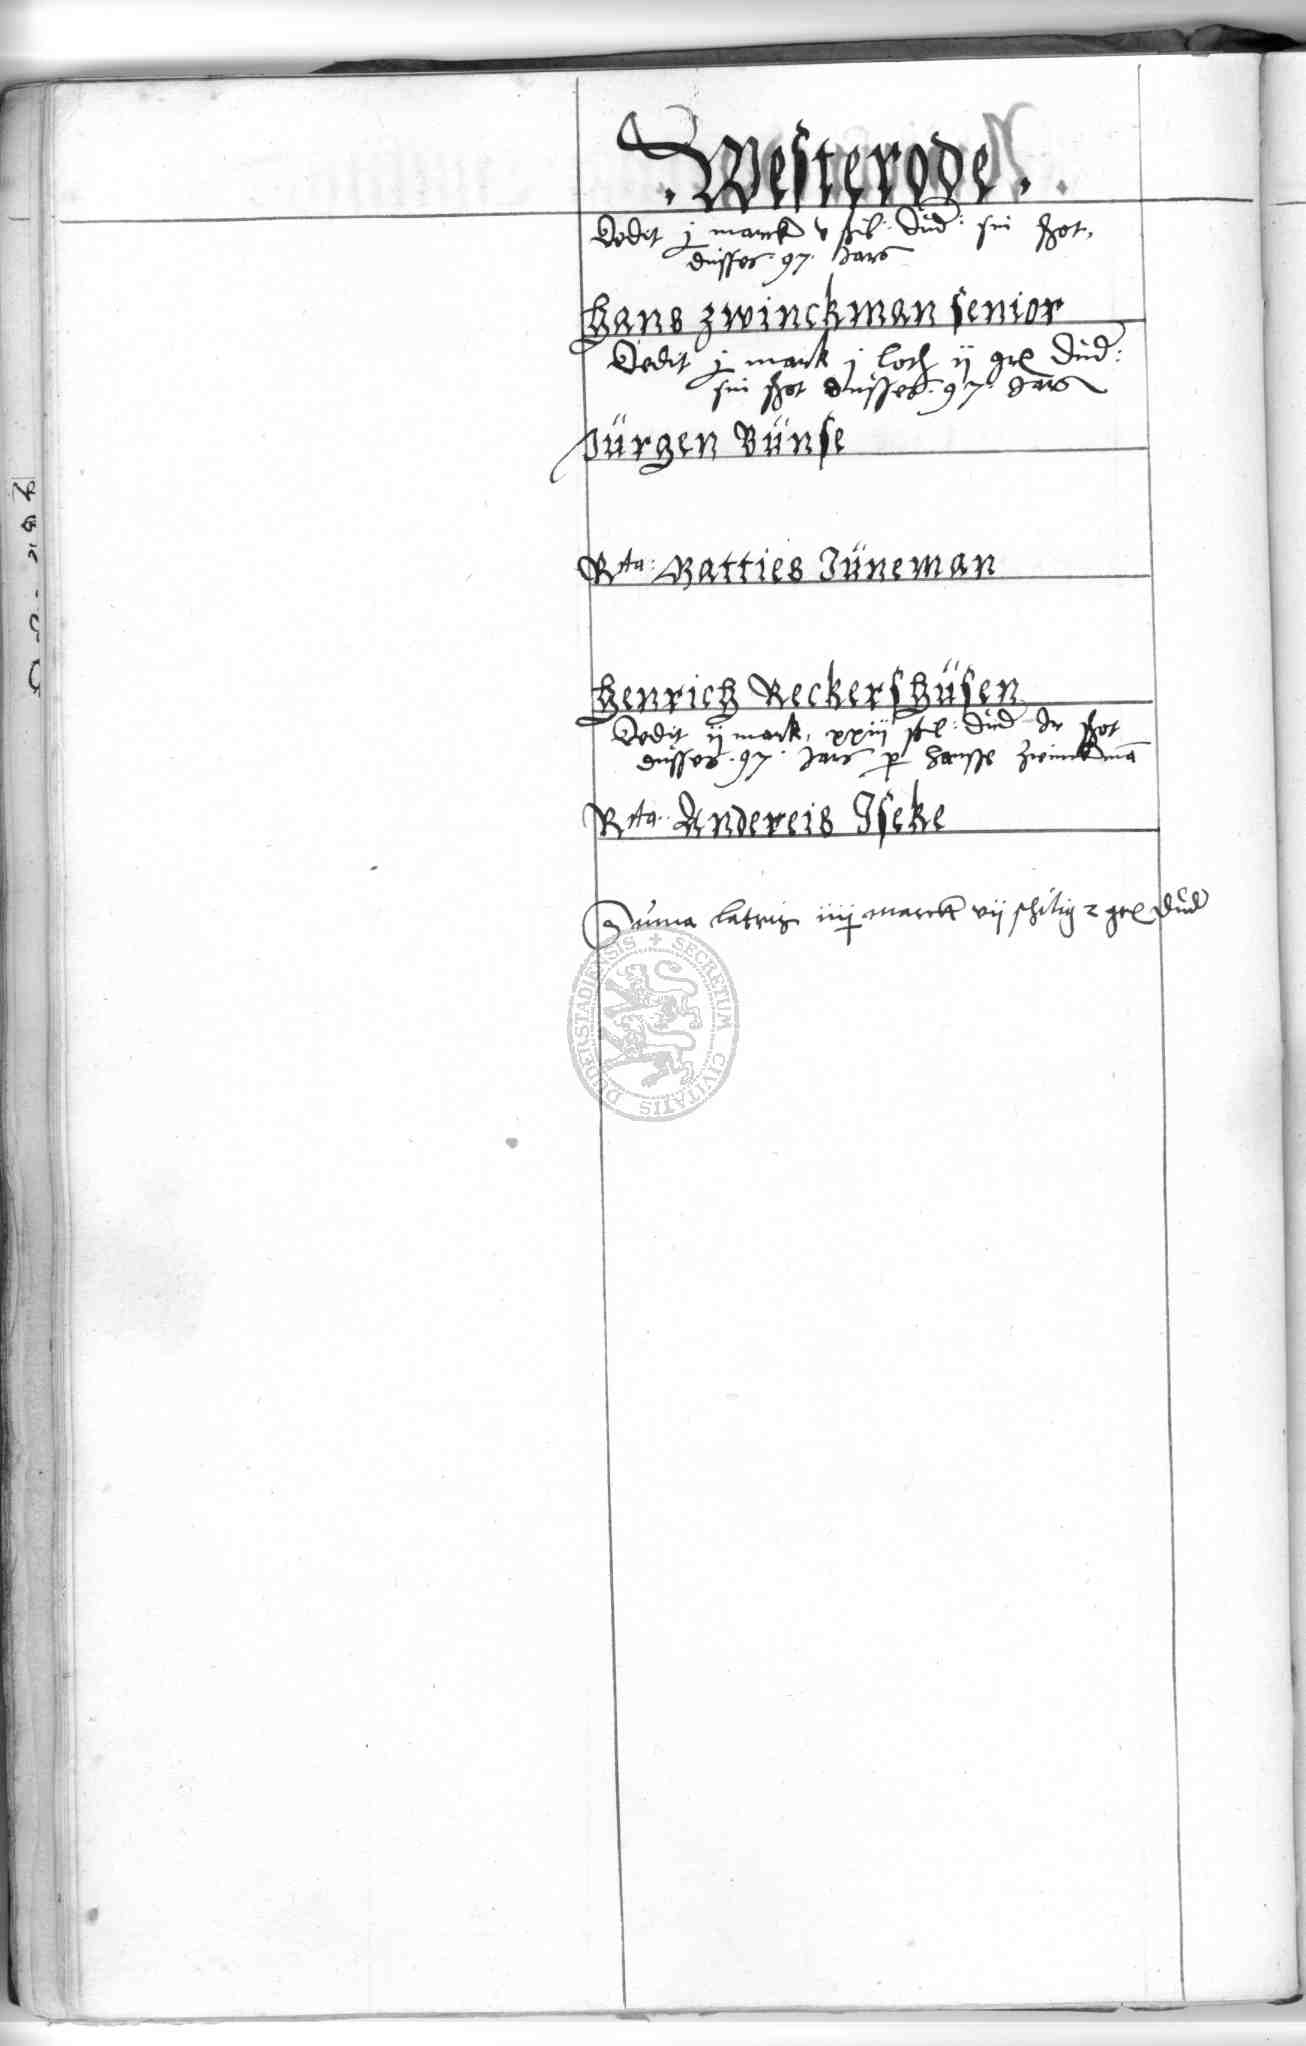 . Westerode .
Dedit j marck v schil: Dud: sin schot,
dusses . 97 . Jars
Hans Zwinckman senior
Dedit j mark j loth ij gr Dud:
sin schot dusses . 97 . Jars
Jürgen Bünse
Rta: Matties Jüneman
Henrich Reckershüsen
Dedit ij mark, xxiij schl: Dud schot
dusses . 97 . Jars p Hansse Zwinckman
Rta. Andereis Iseke
Suma latris iiij marck vij schilig 2 gr Dud
SECRETUM CIVITATIS DUDERSTADIENSIS